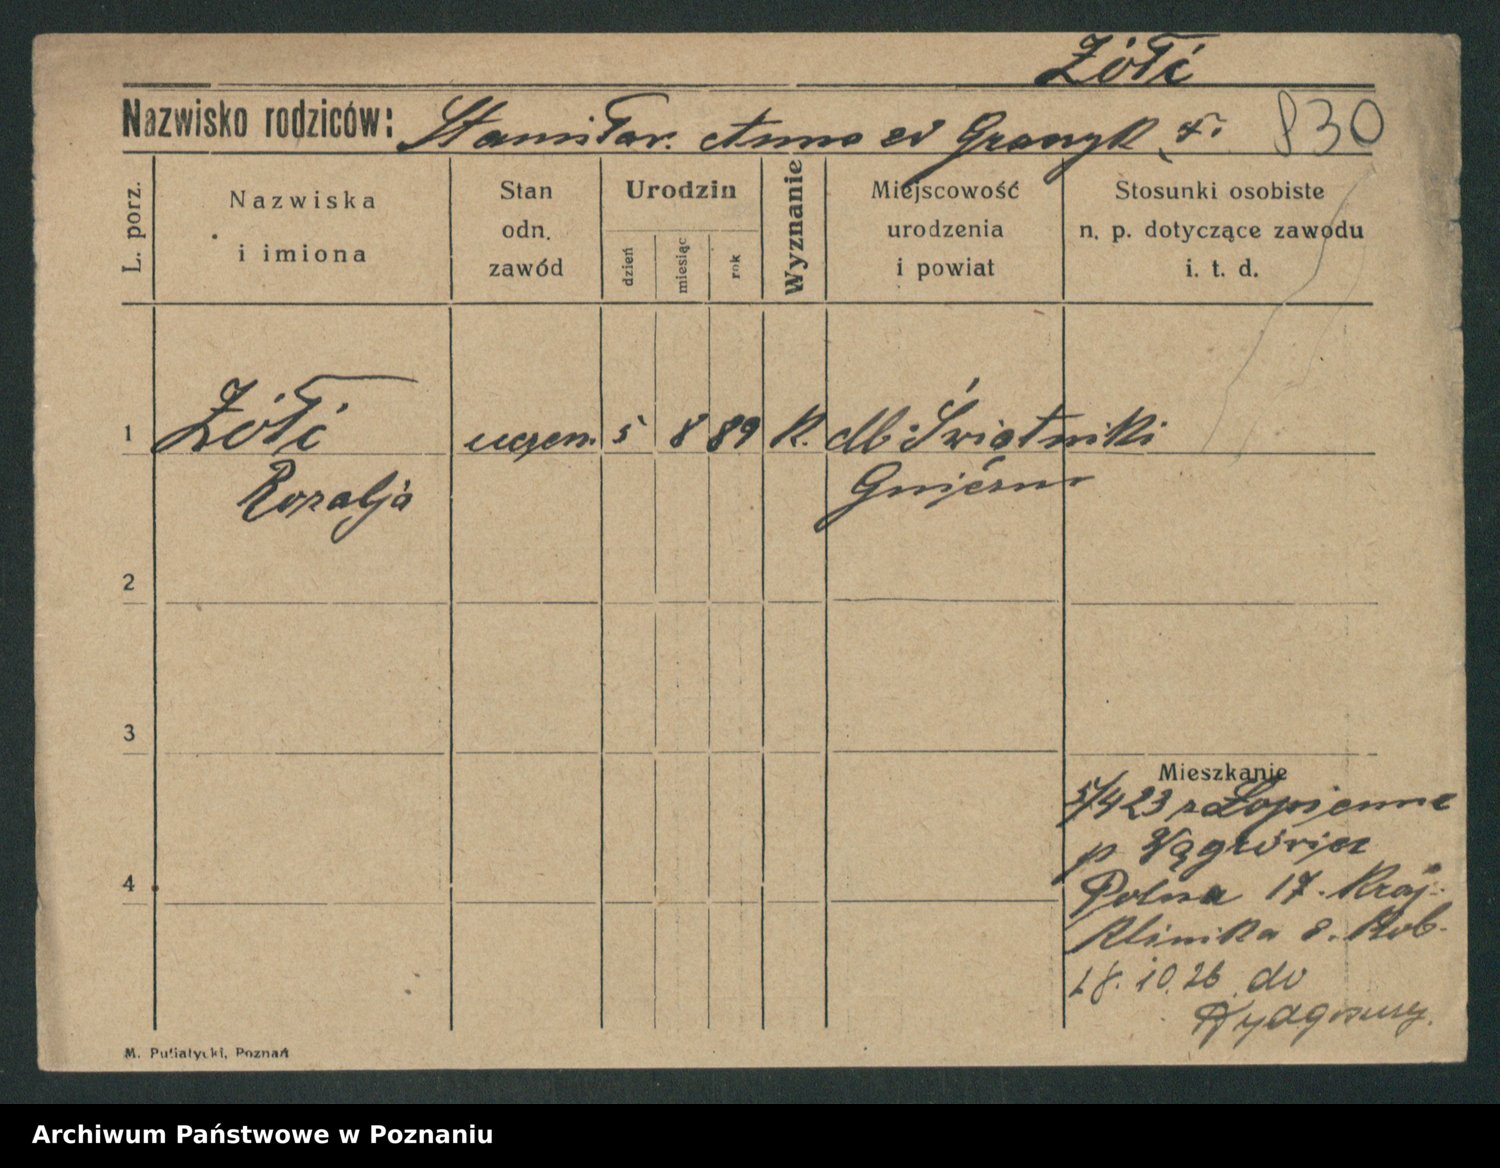 Żółć
Nazwisko rodziców: Stanisław. Anna
830
L. porz.
Nazwiska
i imiona
Stan
odn.
zawód
Urodzin
dzień
miesiąc
rok
Wyznanie
Miejscowość
urodzenia
i powiat
Stosunki osobiste
n. p. dotyczące zawodu
i. t. d.
1 Żółć 5 8 89 k. Świątniki
Rozalja Gniezno
2
3
Mieszkanie
5/4 23 z Łopienna
p Wągrówiec
4
Polna 17. Kraj.
Klinika
28. 10. 26 do
Bydgoszczy.
M. Putiatycki, Poznań
Archiwum Państwowe w Poznaniu